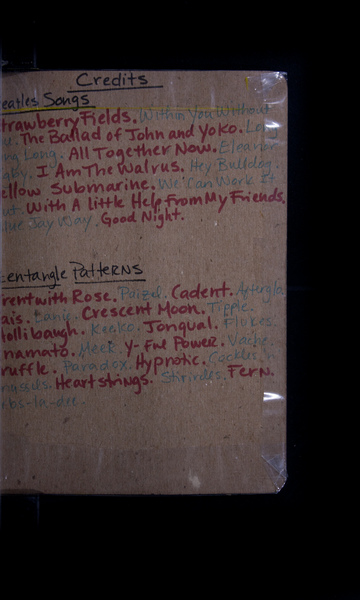 Credits
eatles Songs
trawberry Fields. Within You Without
u. The Ballad of John and Yoko. Long
ng Long. All Together Now. Eleanor
gby. I Am The Walrus. Hey Bulldog.
ellow Submarine. We Can Work It
ut. With A Little Help From My Friends.
lue Jay Way. Good Night.
entangle Patterns
rentwith Rose. Cadent. Afterglo
ais. Crescent Moon. Tipple.
ollibaugh. Keeko. Jonqual. Flukes.
namato. Meer. Y-Ful Power. Vache
ruffle. Paradox. Hypnotic. Cockles n
ngsuls. Heartstrings. Stirrups. Fern.
rbs-la-dee.